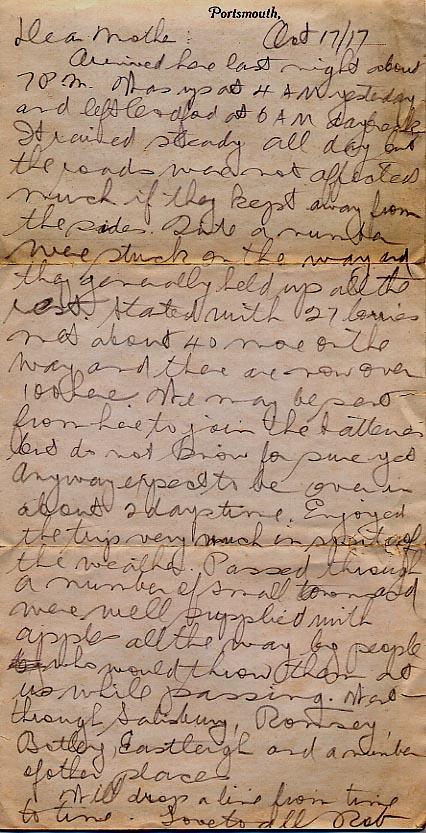 Portsmouth,
Dear Mother: Oct 17/17
Arrived here last night about
7 P.M. Was up at 4 AM yesterday
and left at 6 AM
It rained steady all day but
the roads was not affected
much if they kept away from
the sides. Quite a number
were stuck on the way and
they generally held up all the
rest. Started with 27 lorries
met about 40 more on the
way and there are now over
100 here. We may be sent
from here to join the batteries
but do not know for sure yet
Anyway expect to be over in
about 2 days time. Enjoyed
the trip very much in spite of
the weather. Passed through
a number of small towns and
were well supplied with
apples all the way by people
who would throw them at
us while passing. Went
through Salisbury, Romsey,
Botley, Eastleigh and a number
of other places
Will drop a line from time
to time. Love to all Rob